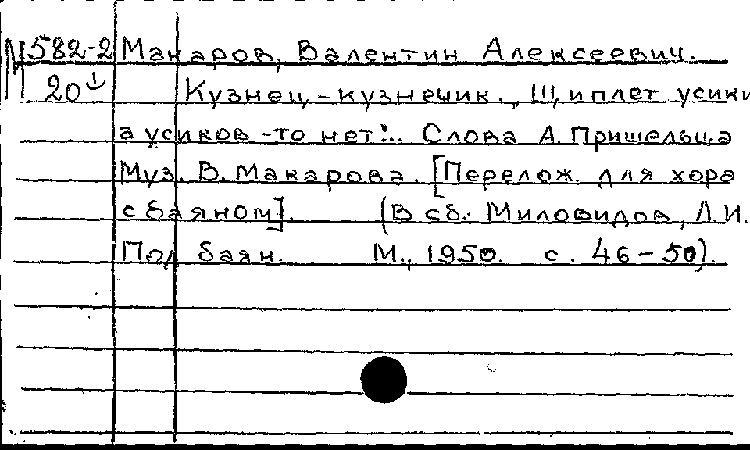 М582-2 Макаров, Валентин Алексеевич.
20 Кузнец-кузнечик., "Шиплет усики
а усиков-то нет!.. Слова А. Пришельца
Муз. В. Макарова. [Перелож. для хора
с баяном]. (В сб.: Миловидов, Л.И.
Под баян. М., 1950. с. 46-50).